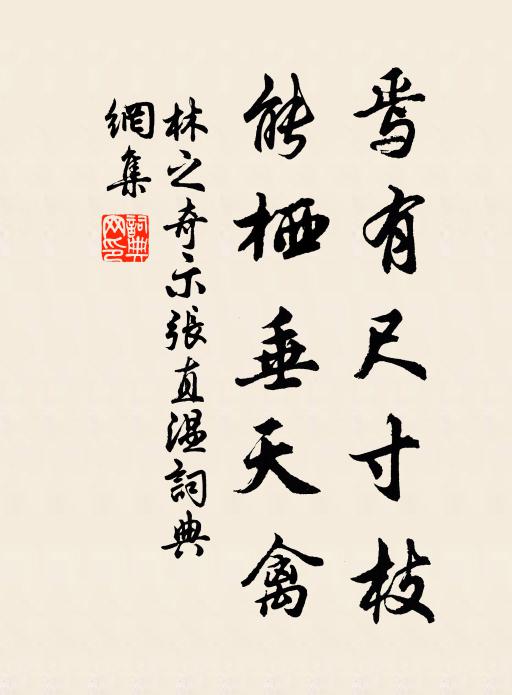 焉有尺寸枝
能栖垂天禽
林之奇示張直溫詞典
網集
詞典
网印